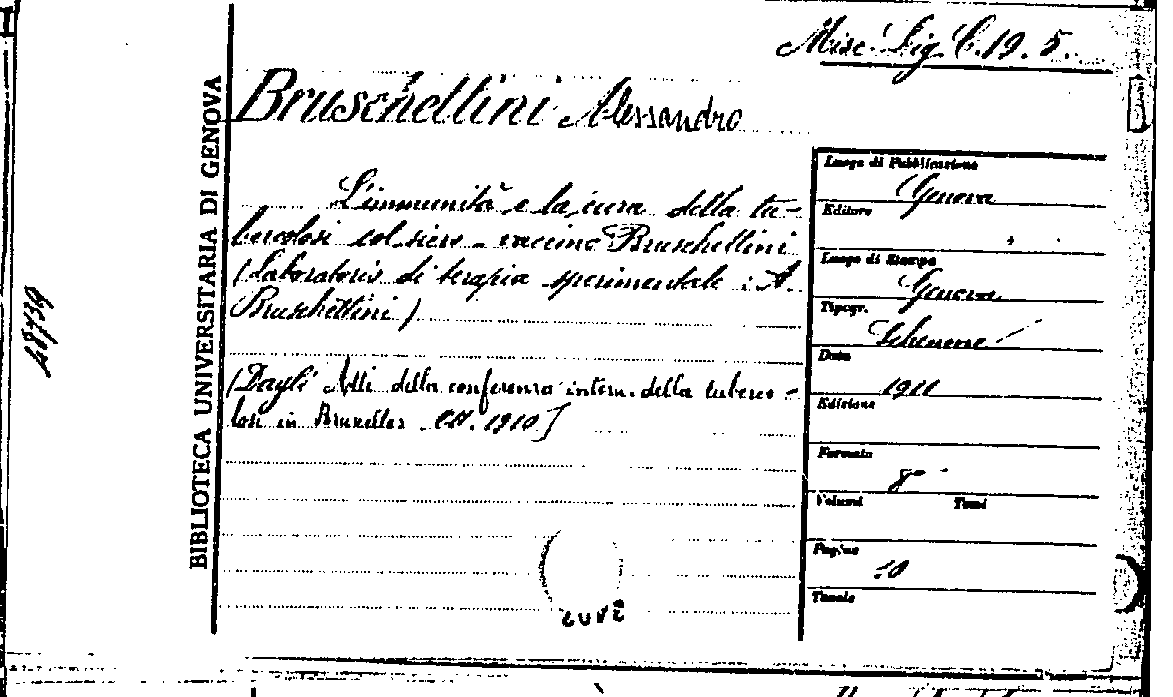 Misc. Lig. C. 19. 5.
Bruschettini Alessandro
L'immunità e la cura della tu-
bercolosi col siero-vaccino Bruschettini
(Laboratorio di terapia sperimentale: A.
Bruschettini)
(Dagli Atti della conferenza intern. della tuberco-
losi in Bruxelles 1910]
BIBLIOTECA UNIVERSITARIA DI GENOVA
Luogo di Pubblicazione
Genova
Editore
Luogo di Stampa
Genova
Tipogr.
Schenone
Data
1911
Edizione
Formato
8°
Volumi Tomi
Pagine
10
Tavole